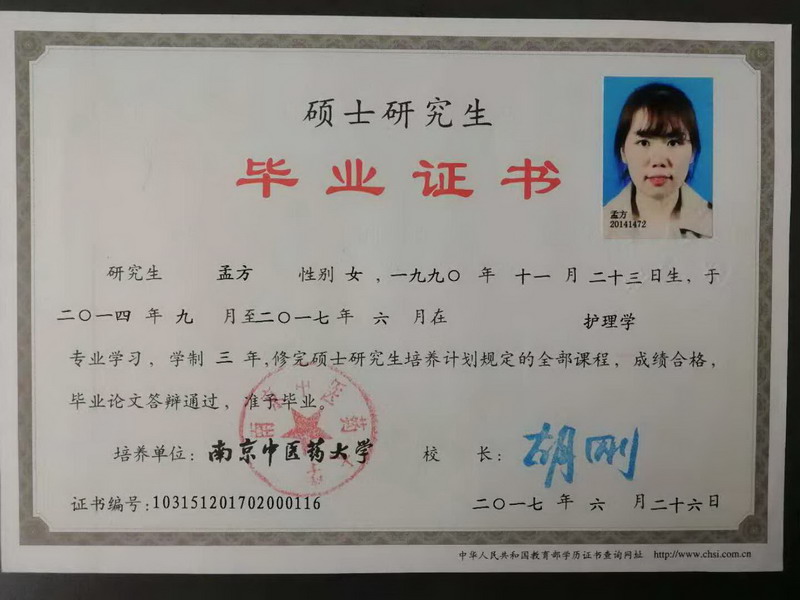 硕士研究生
毕业证书
孟方
20141472
研究生 孟方 性别 女 ，一九九〇 年 十一 月 二十三 日生，于
二〇一四 年 九 月至二〇一七 年 六 月在 护理学
专业学习，学制 三 年，修完硕士研究生培养计划规定的全部课程，成绩合格，
毕业论文答辩通过，准予毕业。
培养单位：南京中医药大学 校 长：胡刚
证书编号：103151201702000116 二〇一七 年 六 月 二十六 日
中华人民共和国教育部学历证书查询网址 http://www.chsi.com.cn